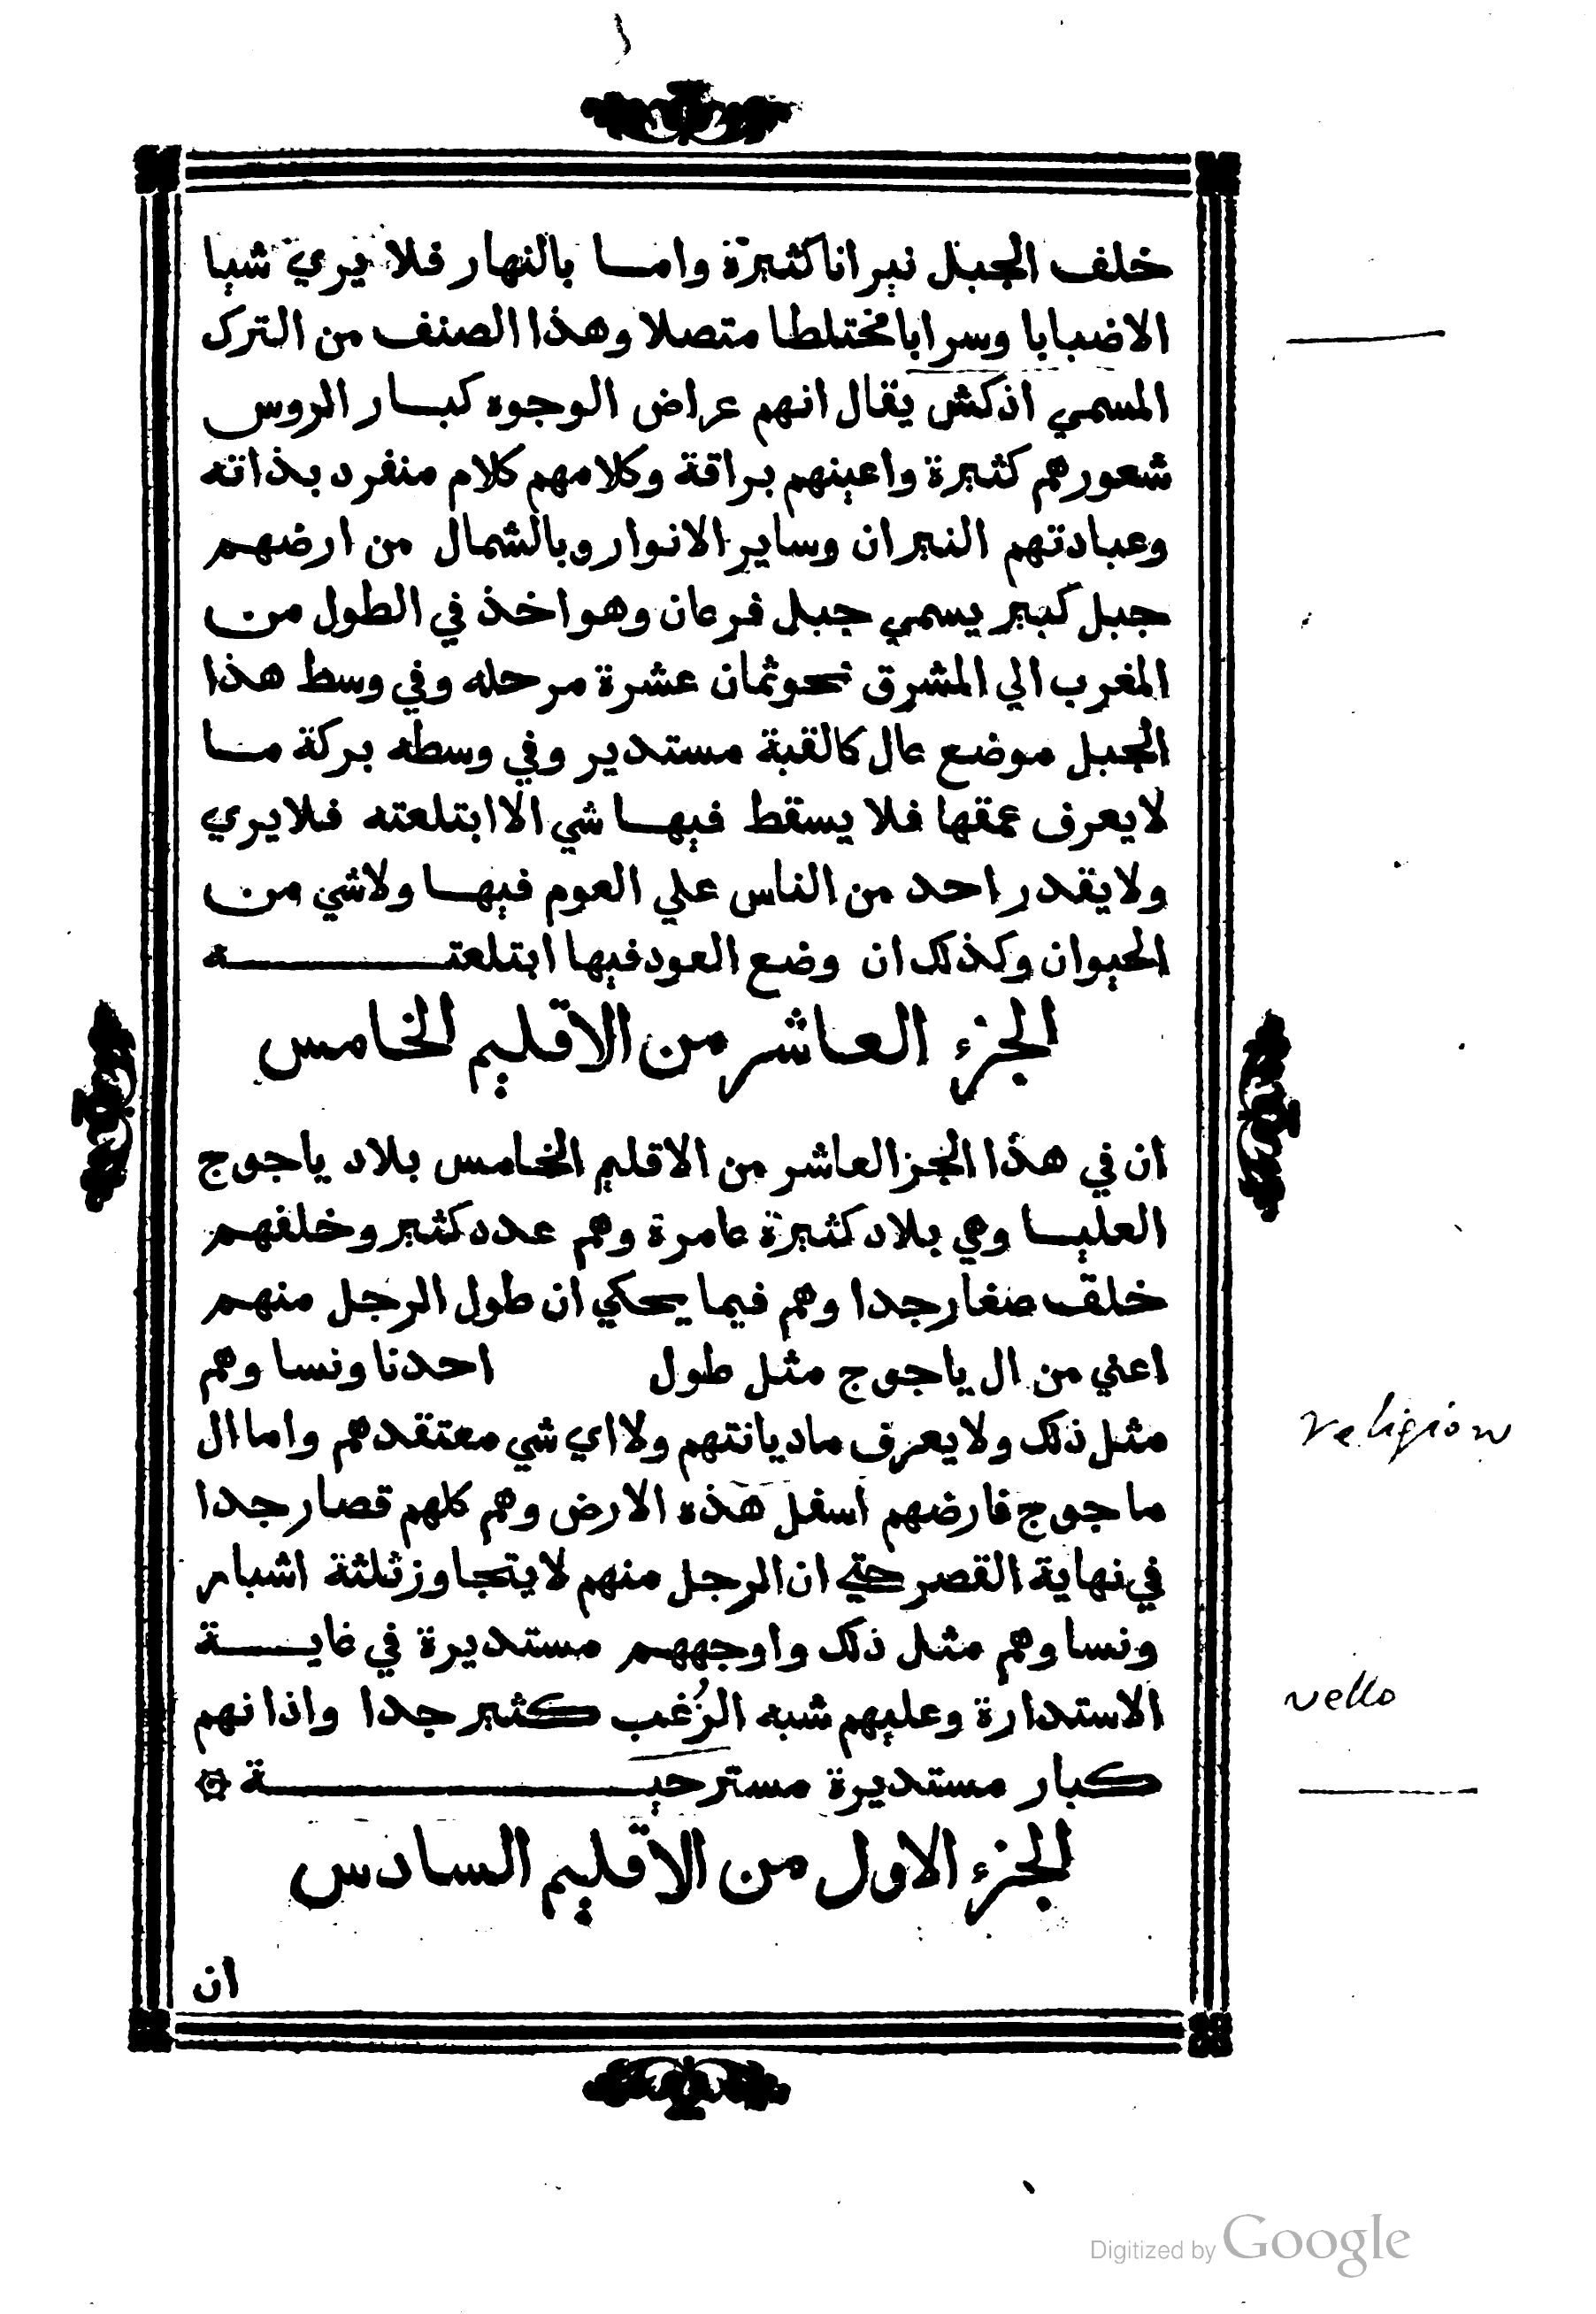 خلف الجبل نيرانا كثيرة واما بالنهار فلا يري شيا
الاضبابا وسرابا مختلطا متصلا وهذا الصنف من الترك
المسمي اذكش يقال انهم عراض الوجوه كبار الروس
شعورهم كثيرة واعينهم براقة وكلامهم كلام منفرد بذاته
وعبادتهم النيران وساير الانوار وبالشمال من ارضهم
جبل كبير يسمي جبل فرعان وهو اخذ في الطول من
المغرب الي المشرق نحو ثمان عشرة مرحله وفي وسط هذا
الجبل موضع عال كالقبة مستدير وفي وسطه بركة ما
لا يعرف عمقها فلا يسقط فيها شي الا ابتلعته فلا يري
ولا يقدر احد من الناس علي العوم فيها ولا شي من
الحيوان وكذلك ان وضع العود فيها ابتلعته
الجزء العاشر من الاقليم الخامس
ان في هذا الجز العاشر من الاقليم الخامس بلاد ياجوج
العليا وهي بلاد كثيرة عامرة وهم عدد كثير وخلفهم
خلق صغار جدا وهم فيما يحكي ان طول الرجل منهم
اعني من ال ياجوج مثل طول احدنا ونسا وهم
مثل ذلك ولا يعرف ما ديانتهم ولا اي شي معتقدهم واما ال
religion
ماجوج فارضهم اسفل هذه الارض وهم كلهم قصار جدا
في نهاية القصر حتي ان الرجل منهم لا يتجاوز ثلثة اشبار
ونسا وهم مثل ذلك واوجههم مستديرة في غاية
الاستدارة وعليهم شبه الزُغب كثير جدا واذانهم
vello
كبار مستديرة مسترحية
الجزء الاول من الاقليم السادس
ان
Digitized by Google